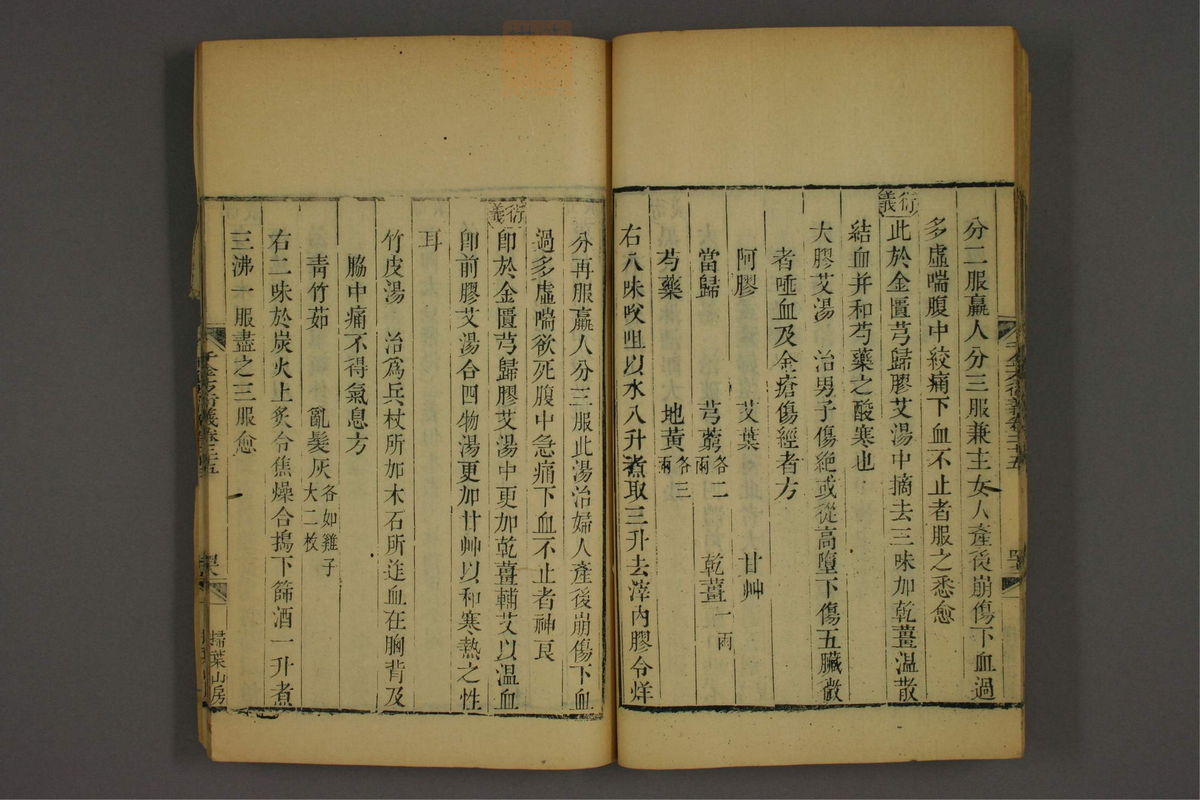 分二服羸人分三服兼主女人產後崩傷下血過
多虛喘腹中絞痛下血不止者服之悉愈
衍義
此於金匱芎歸膠艾湯中摘去三味加乾薑温散
結血并和芍藥之酸寒也
大膠艾湯 治男子傷絶或從高墮下傷五臟微
者唾血及金瘡傷經者方
阿膠 艾葉 甘艸
當歸 芎藭各二兩 乾薑一兩
芍藥 地黄各三兩
右八味㕮咀以水八升煮取三升去滓内膠令烊
分再服羸人分三服此湯治婦人產後崩傷下血
過多虛喘欲死腹中急痛下血不止者神良
衍義
即於金匱芎歸膠艾湯中更加乾薑輔艾以温血
即前膠艾湯合四物湯更加甘艸以和寒熱之性
耳
竹皮湯 治爲兵杖所加木石所迮血在胸背及
脇中痛不得氣息方
靑竹茹 亂髮灰各如雞子大二枚
右二味於炭火上炙令焦燥合搗下篩酒一升煮
三沸一服盡之三服愈
千金方衍義卷二十五
掃葉山房